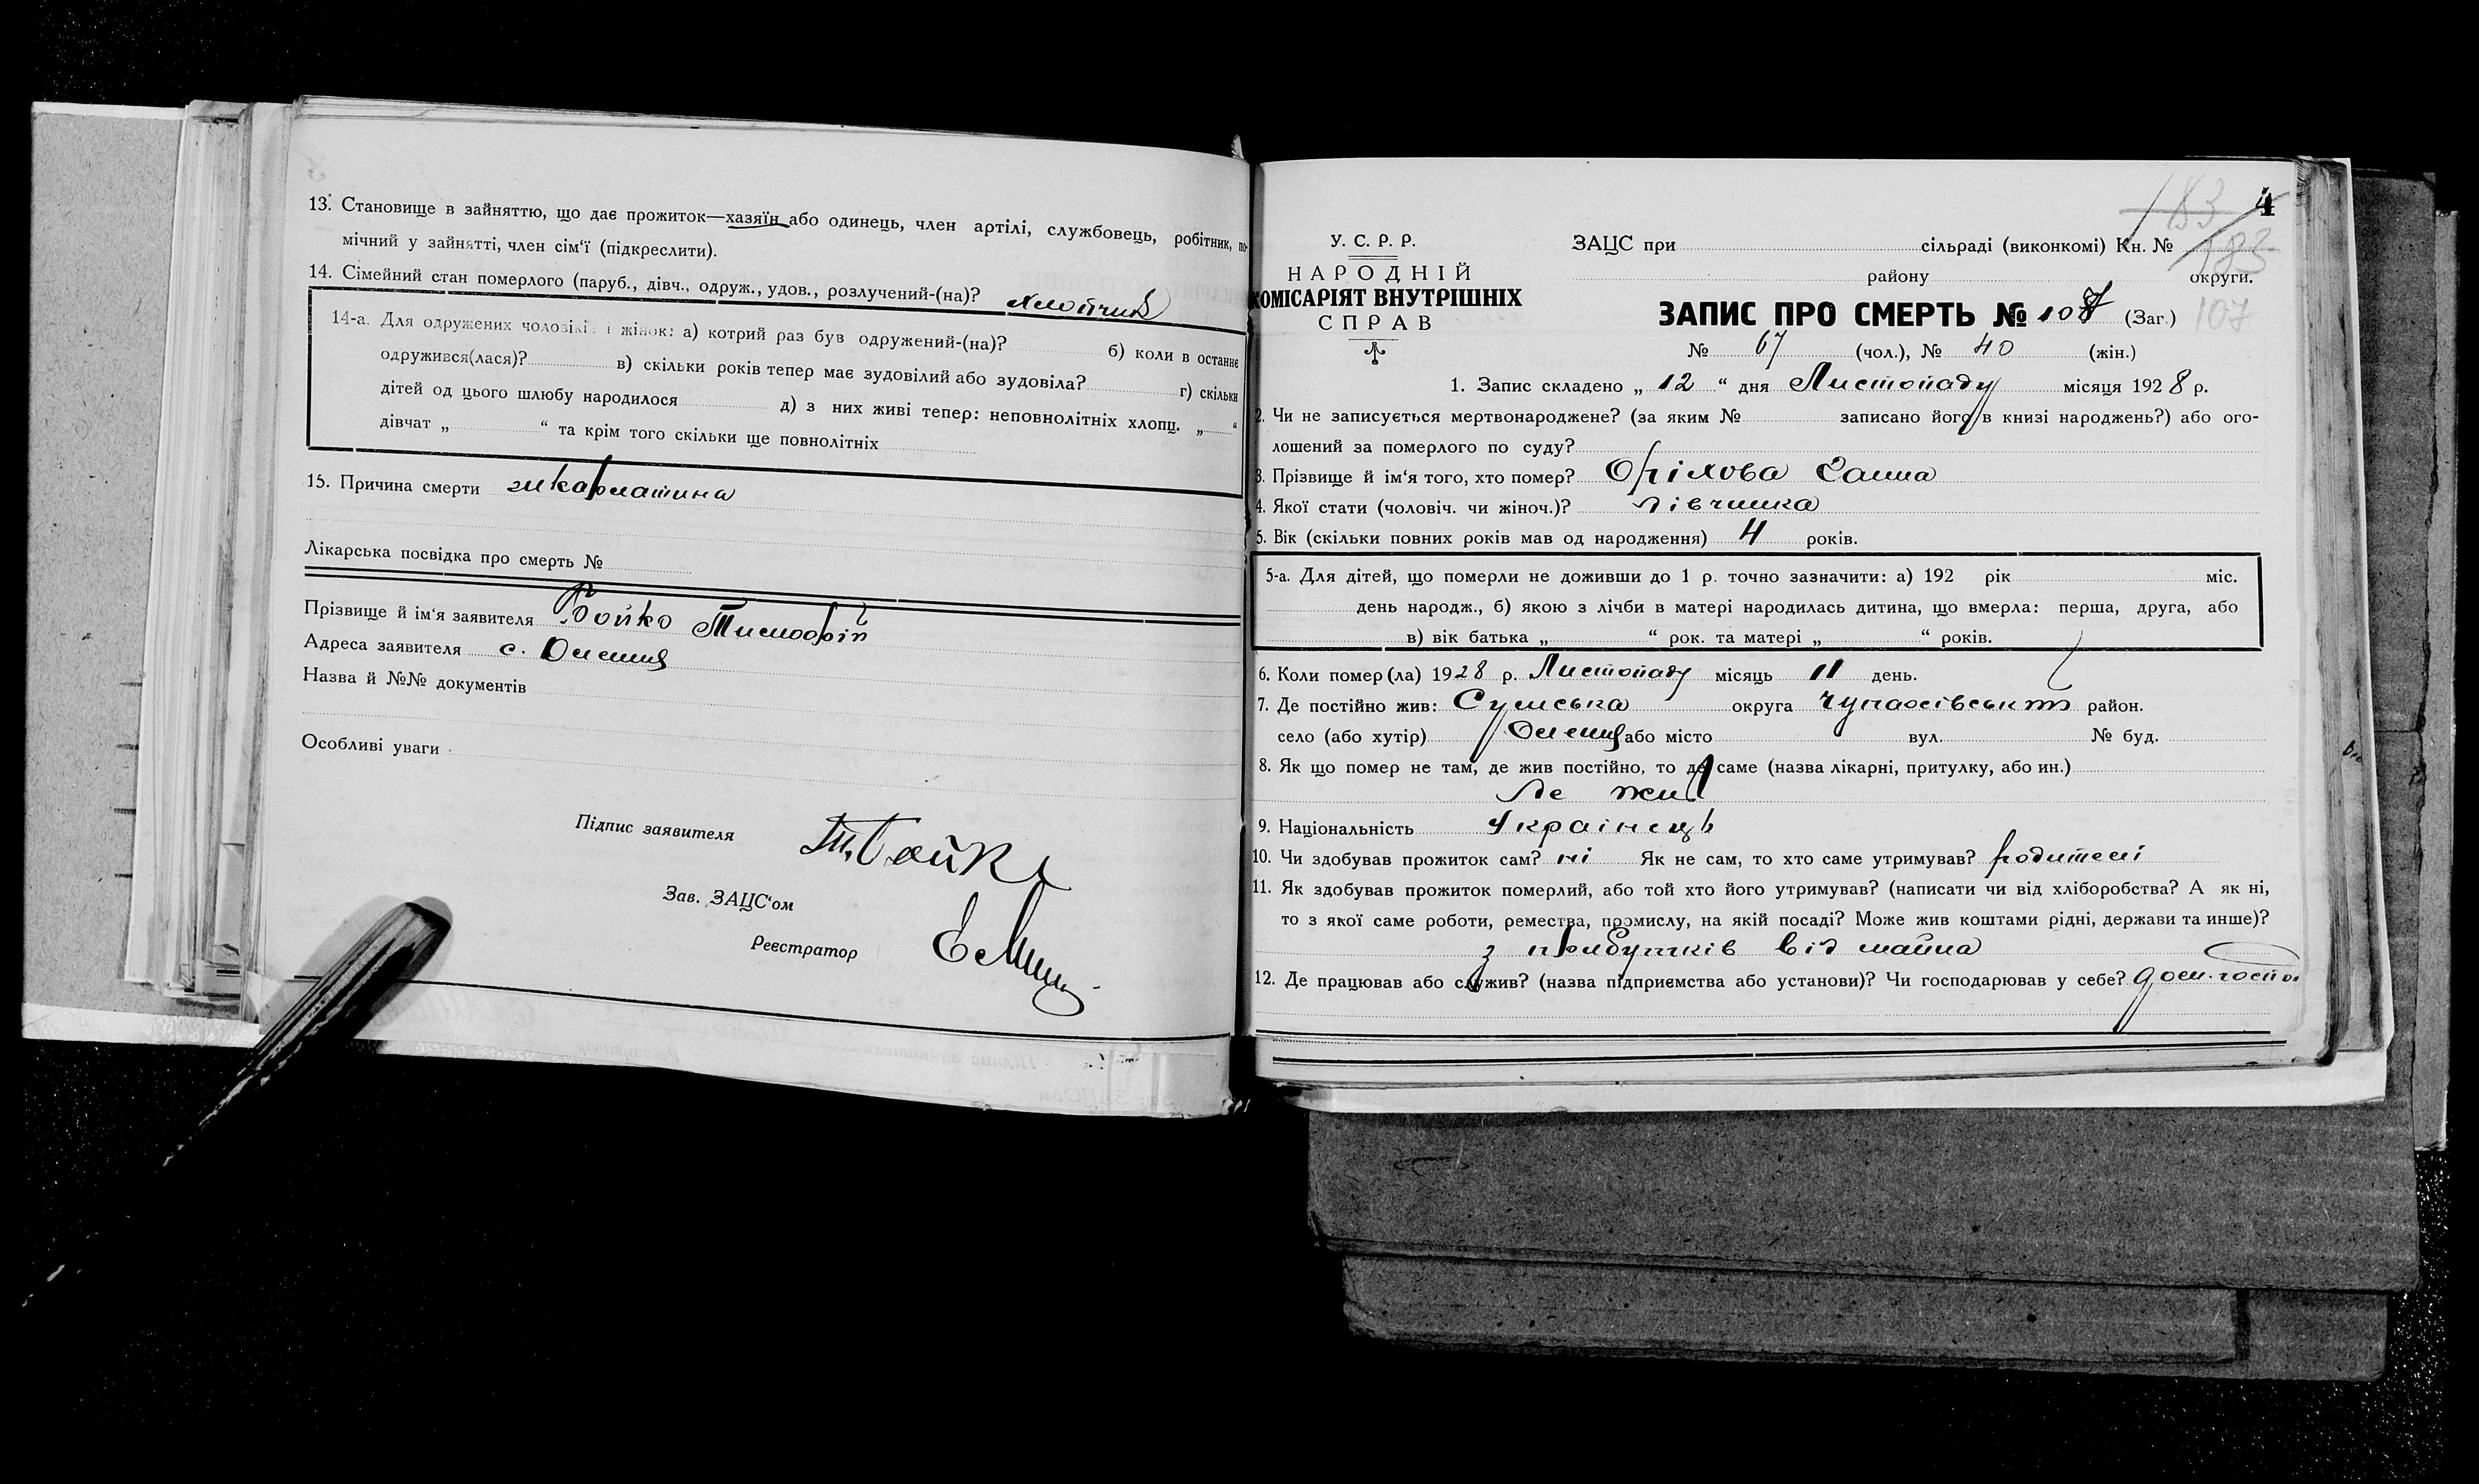 13. Становище в зайняттю, що дає прожиток—хазяїн або одинець, член артілі, службовець, робітник, по-
мічний у зайнятті, член сім'ї (підкреслити).
14. Сімейний стан померлого (паруб., дівч., одруж., удов., розлучений-(на)? хлопчик
14-а. Для одружених чоловіків і жінок: а) котрий раз був одружений-(на)? б) коли в останнє
одружився(лася)? в) скільки років тепер має зудовілий або зудовіла? г) скільки
дітей од цього шлюбу народилося д) з них живі тепер: неповнолітніх хлопц. „ “
дівчат „ “ та крім того скільки ще повнолітніх
15. Причина смерти шкарлатина
Лікарська посвідка про смерть №
Прізвище й ім'я заявителя Бойко Тимофій
Адреса заявителя с.
Назва й №№ документів
Особливі уваги
Підпис заявителя Т. Бойко
Зав. ЗАЦС'ом
Реєстратор
4
183
183
У. С. Р. Р.
НАРОДНІЙ
КОМІСАРІЯТ ВНУТРІШНІХ
СПРАВ
ЗАЦС при сільраді (виконкомі) Кн. №
району округи.
ЗАПИС ПРО СМЕРТЬ № 107 (Заг.) 107
№ 67 (чол.), № 40 (жін.)
1. Запис складено „ 12 “ дня Листопаду місяця 1928 р.
2. Чи не записується мертвонароджене? (за яким № записано його в книзі народжень?) або ого-
лошений за померлого по суду?
3. Прізвище й ім'я того, хто помер? Орілова Ганна
4. Якої стати (чоловіч. чи жіноч.)? дівчинка
5. Вік (скільки повних років мав од народження) 4 років.
5-а. Для дітей, що померли не доживши до 1 р. точно зазначити: а) 192 рік міс.
день народж., б) якою з лічби в матері народилась дитина, що вмерла: перша, друга, або
в) вік батька „ “ рок. та матері „ “ років.
6. Коли помер(ла) 1928 р. Листопаду місяць 11 день.
7. Де постійно жив: Сумська округа район.
село (або хутір) або місто вул. № буд.
8. Як що помер не там, де жив постійно, то де саме (назва лікарні, притулку, або ин.)
де жив
9. Національність Українець
10. Чи здобував прожиток сам? ні Як не сам, то хто саме утримував? родителі
11. Як здобував прожиток померлий, або той хто його утримував? (написати чи від хліборобства? А як ні,
то з якої саме роботи, ремества, промислу, на якій посаді? Може жив коштами рідні, держави та инше)?
з прибутків від майна
12. Де працював або служив? (назва підприємства або установи)? Чи господарював у себе?